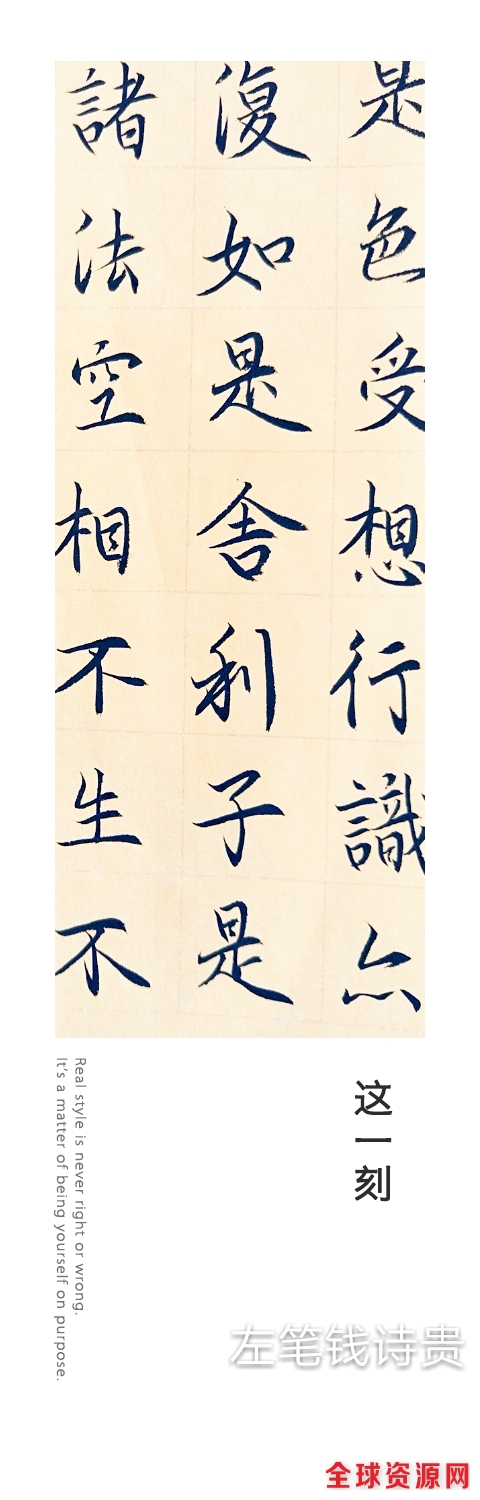 是色受想行識亦
復如是舍利子是
諸法空相不生不
这一刻
Real style is never right or wrong.
It's a matter of being yourself on purpose.
左笔钱诗贵
全球资源网